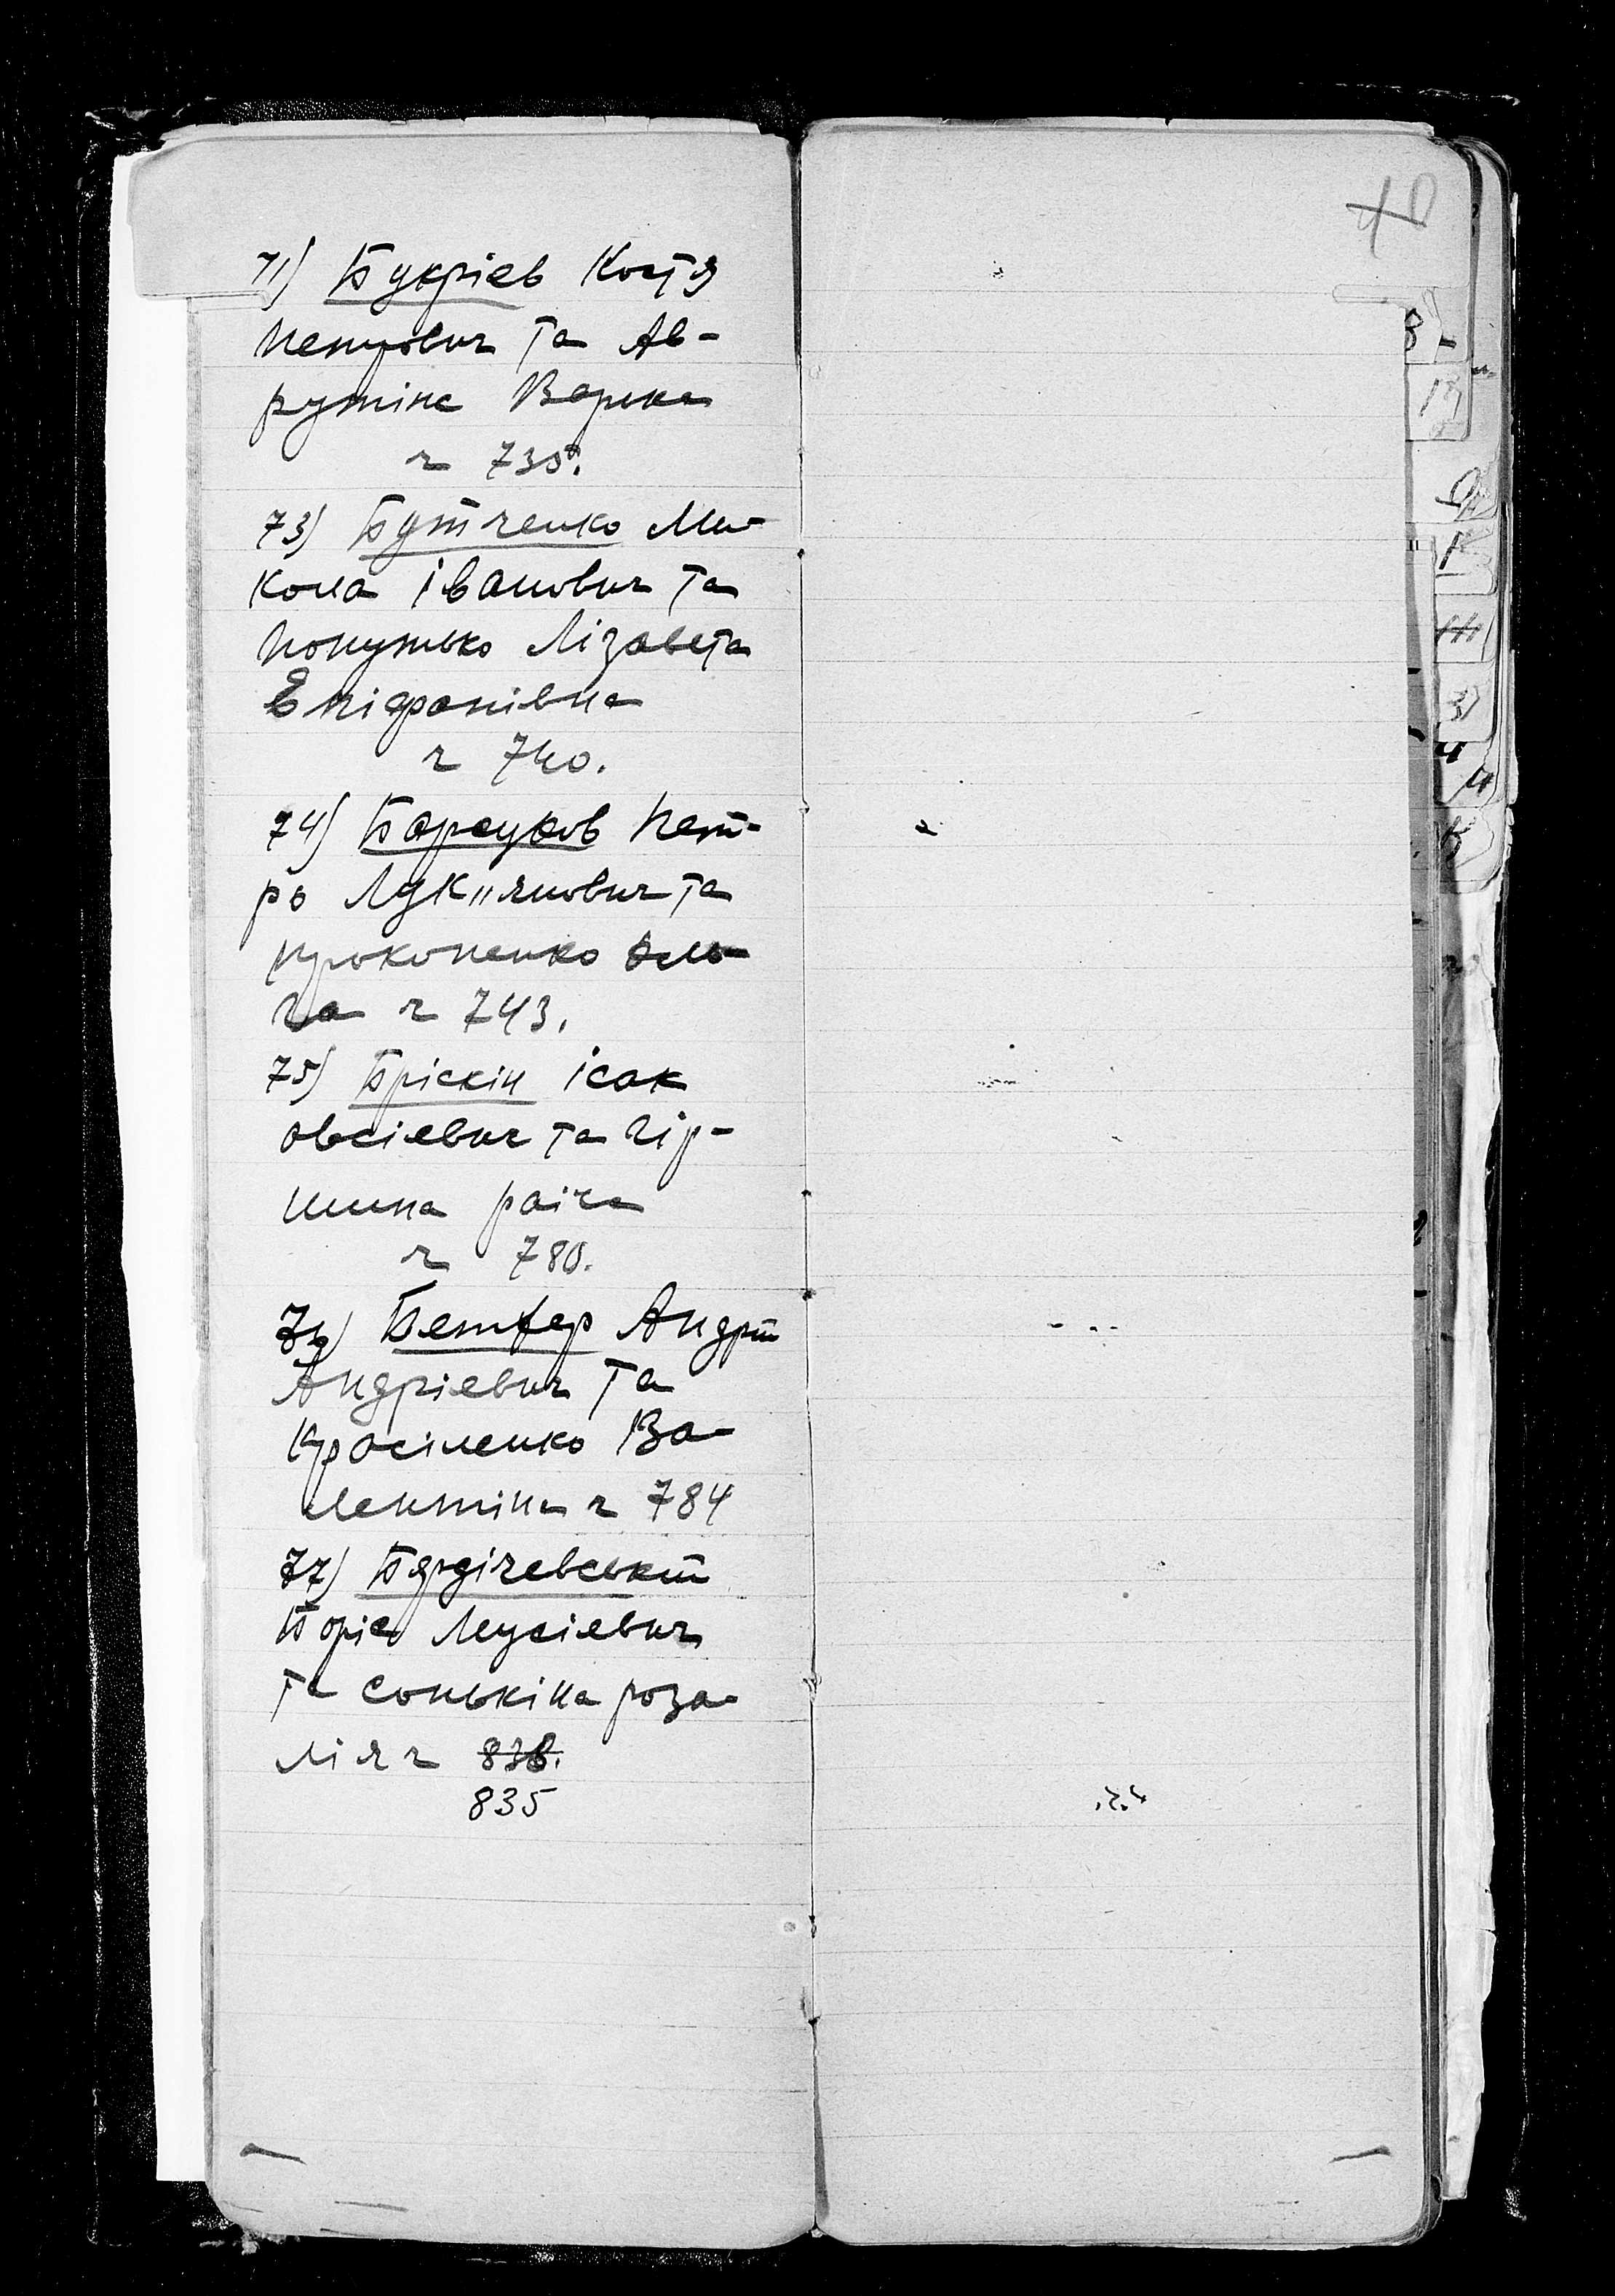 71) Букрієв Костя
Петрович та Ав-
рутіна Варка
ч 735.
73) Бутченко Ми-
кола Іванович та
Попутько Лізавета
Епіфанівна
ч 740.
74) Барсуков Пет-
ро Лук"янович та
Прокопенко Оль-
га ч 743.
75) Бріскін Ісак
Овсієвич та Гір-
шина раіса
ч 780.
76) Бетхер Андрій
Андрієвич та
Красіленко Ва-
лентіна ч 784
77) Бердічевський
Боріс Мусієвич
та Сонькіна роза-
лія ч 838.
835
40